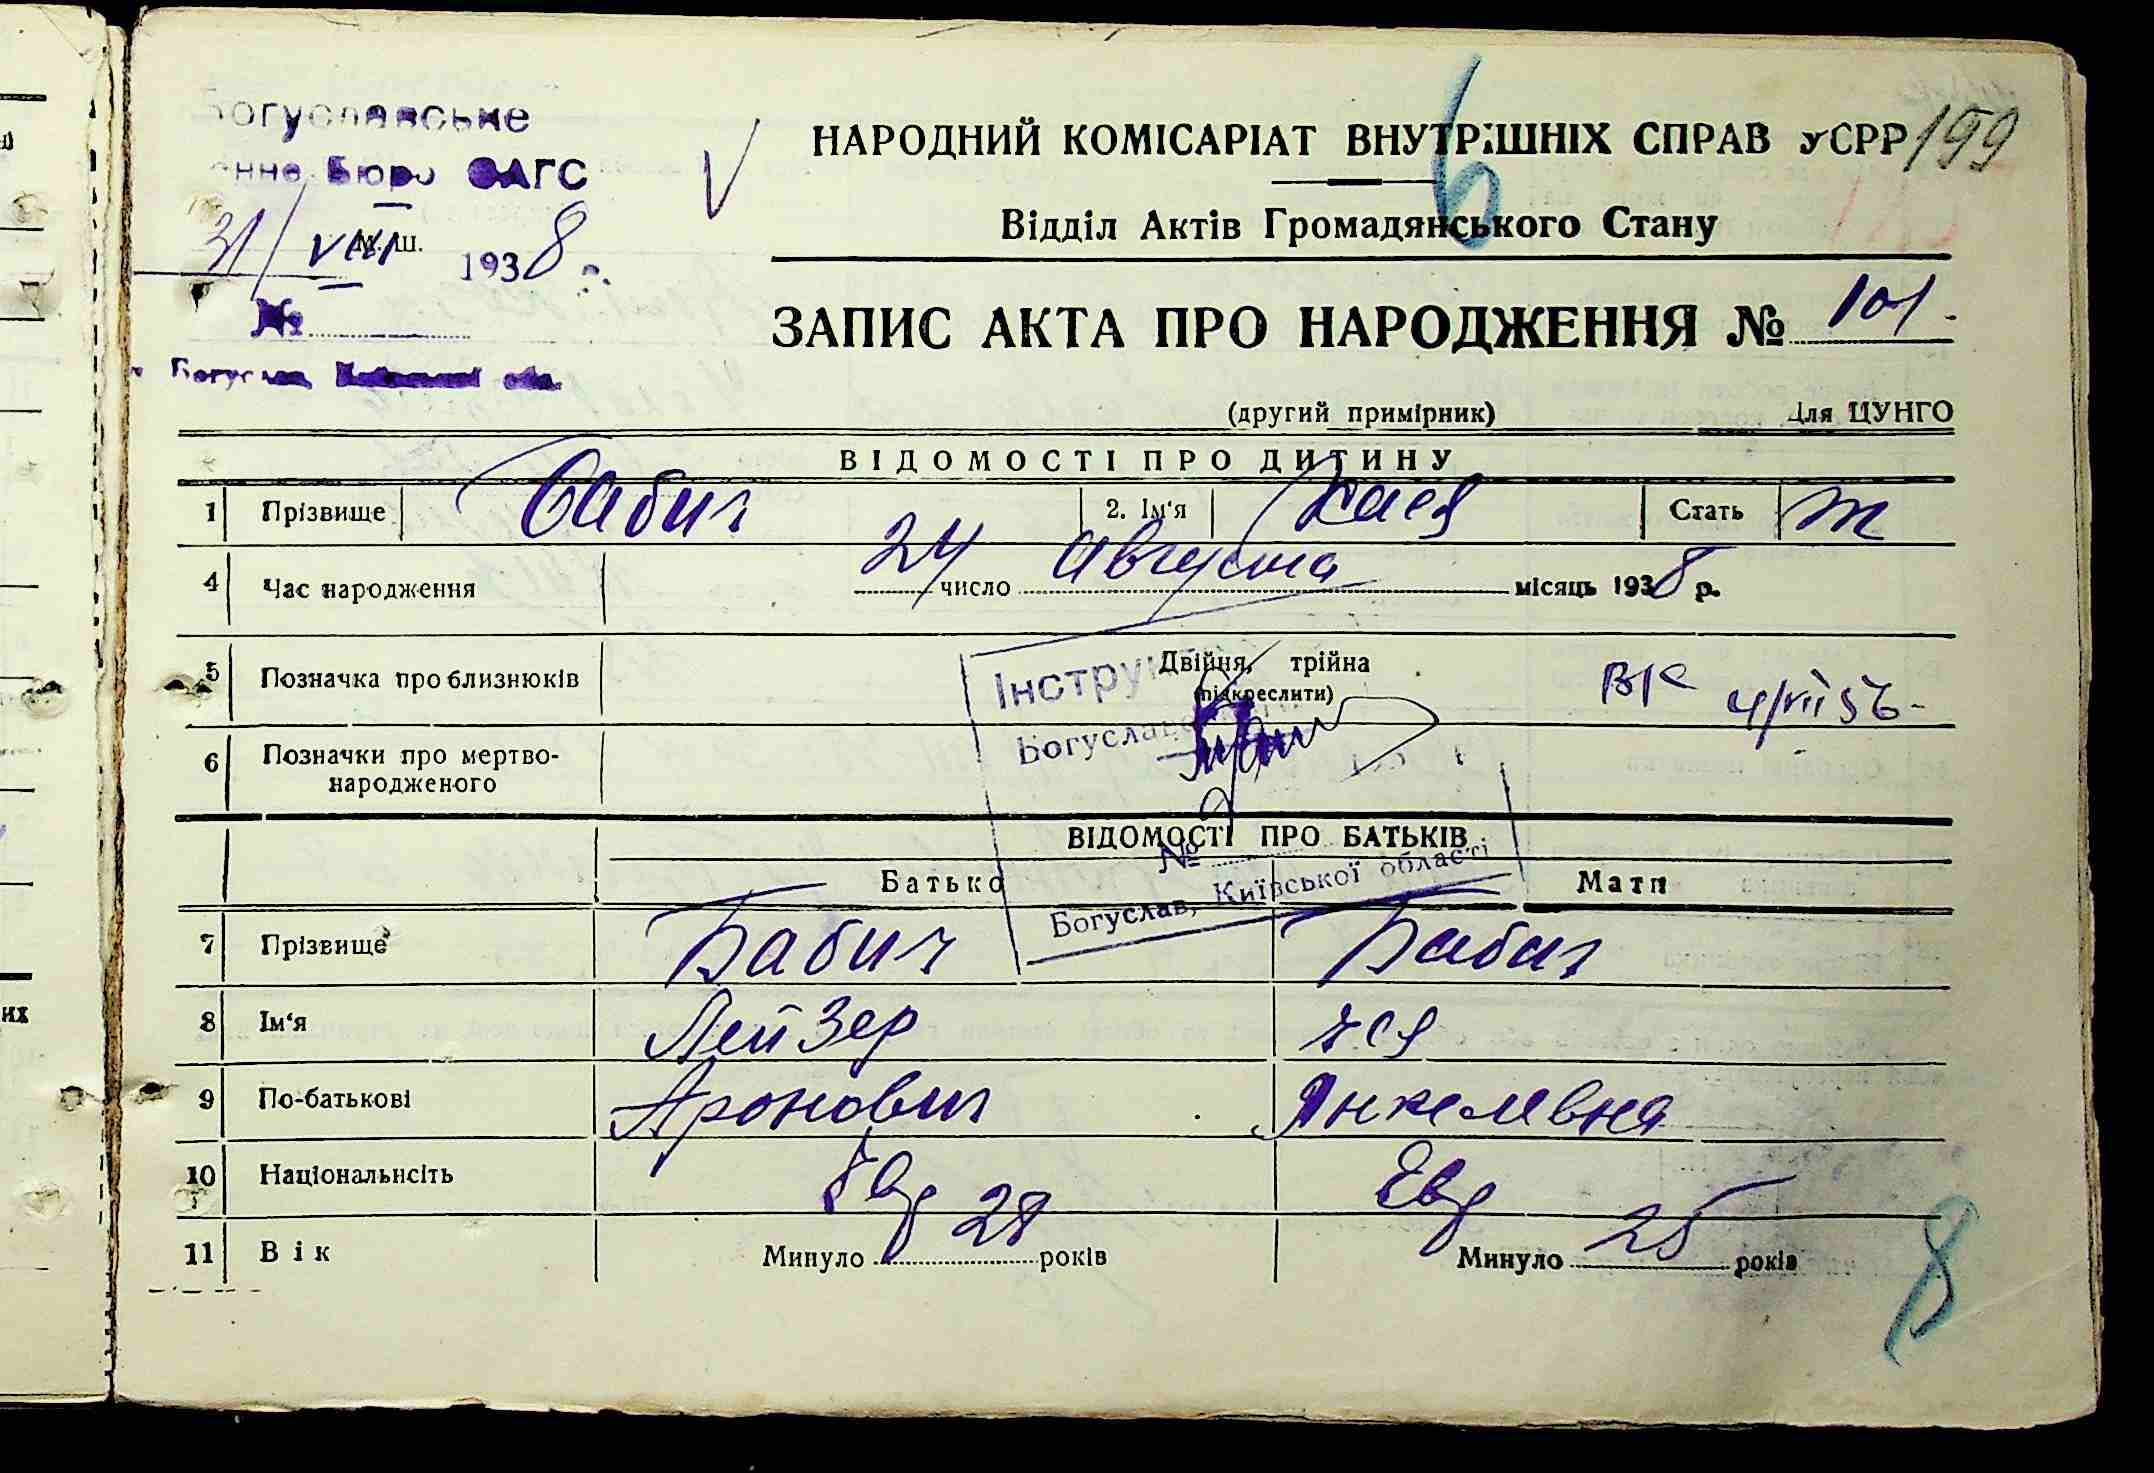 Богуславське
Бюро ЗАГС
31/VIII 1938 р.
№
Богуслав,
199
НАРОДНИЙ КОМІСАРІАТ ВНУТРІШНІХ СПРАВ УСРР
6
Відділ Актів Громадянського Стану
ЗАПИС АКТА ПРО НАРОДЖЕННЯ № 101.
(другий примірник) Для ЦУНГО
ВІДОМОСТІ ПРО ДИТИНУ
1 Прізвище Бабич 2. Ім'я Хася Стать Ж
4 Час народження 24 число Августа місяць 1938 р.
5 Позначка про близнюків Двійня, трійна
(підкреслити)
6 Позначки про мертво-
народженого
Богуслав, Київської області
№
ВІДОМОСТІ ПРО БАТЬКІВ
Батько Мати
7 Прізвище Бабич Бабич
8 Ім'я Лейзер
9 По-батькові Аронович Янкелевна
10 Національнсіть Евр Евр
11 Вік Минуло 28 років Минуло 25 років
8